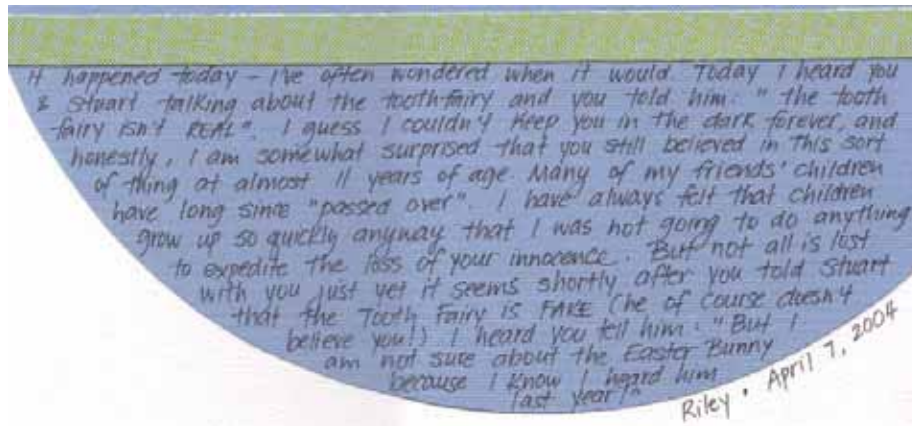 it happened today - I've often wondered when it would. Today I heard you
& Stuart talking about the tooth-fairy and you told him: "the tooth
fairy isn't REAL". I guess I couldn't keep you in the dark forever, and
honestly, I am somewhat surprised that you still believed in this sort
of thing at almost 11 years of age. Many of my friends' children
have long since "passed over". I have always felt that children
grow up so quickly anyway that I was not going to do anything
to expedite the loss of your innocence. But not all is lost
with you just yet it seems shortly after you told Stuart
that the Tooth Fairy is FAKE (he of course doesn't
believe you!) I heard you tell him: "But I
am not sure about the Easter Bunny
because I know I heard him
last year!"
Riley • April 7, 2004